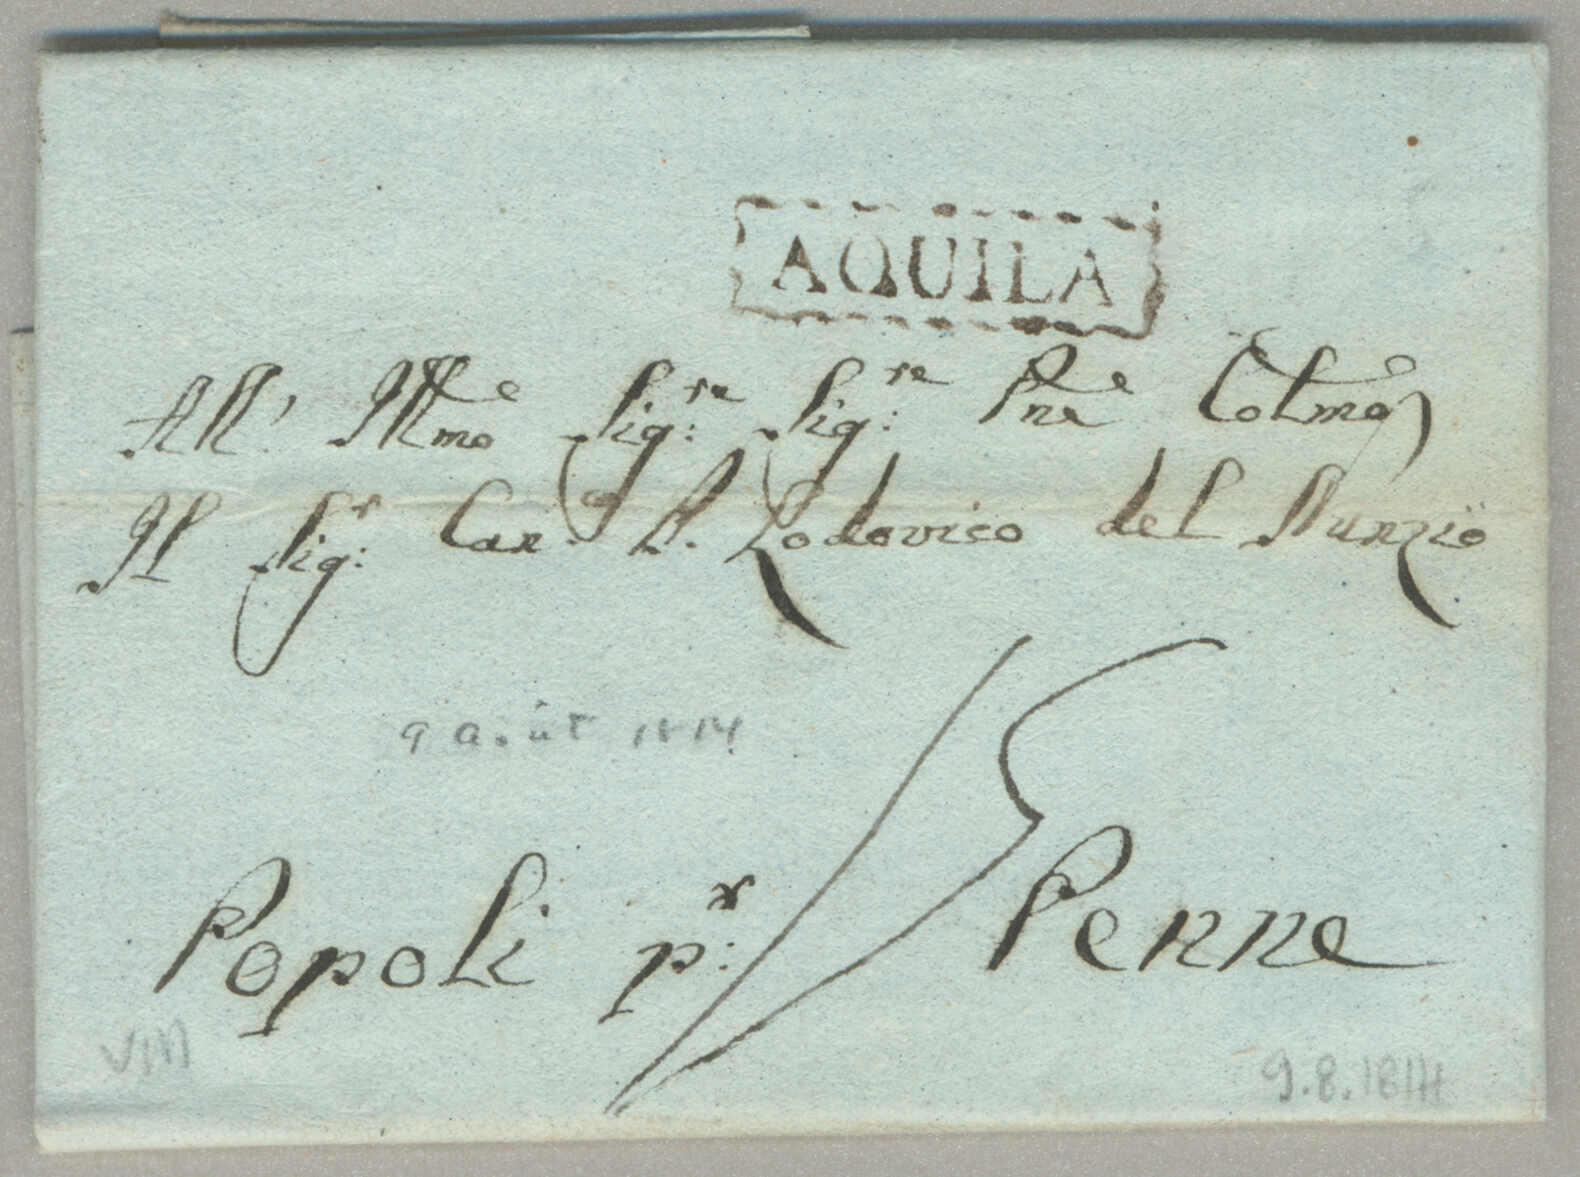 AQUILA
All' Ill͠mo Sig:re Sig:re P̃ne Colmo
Il Sig:r Can. D. Lodovico del Nunzio
9 août 1814
15
Popoli p:r Penne
9.8.1814